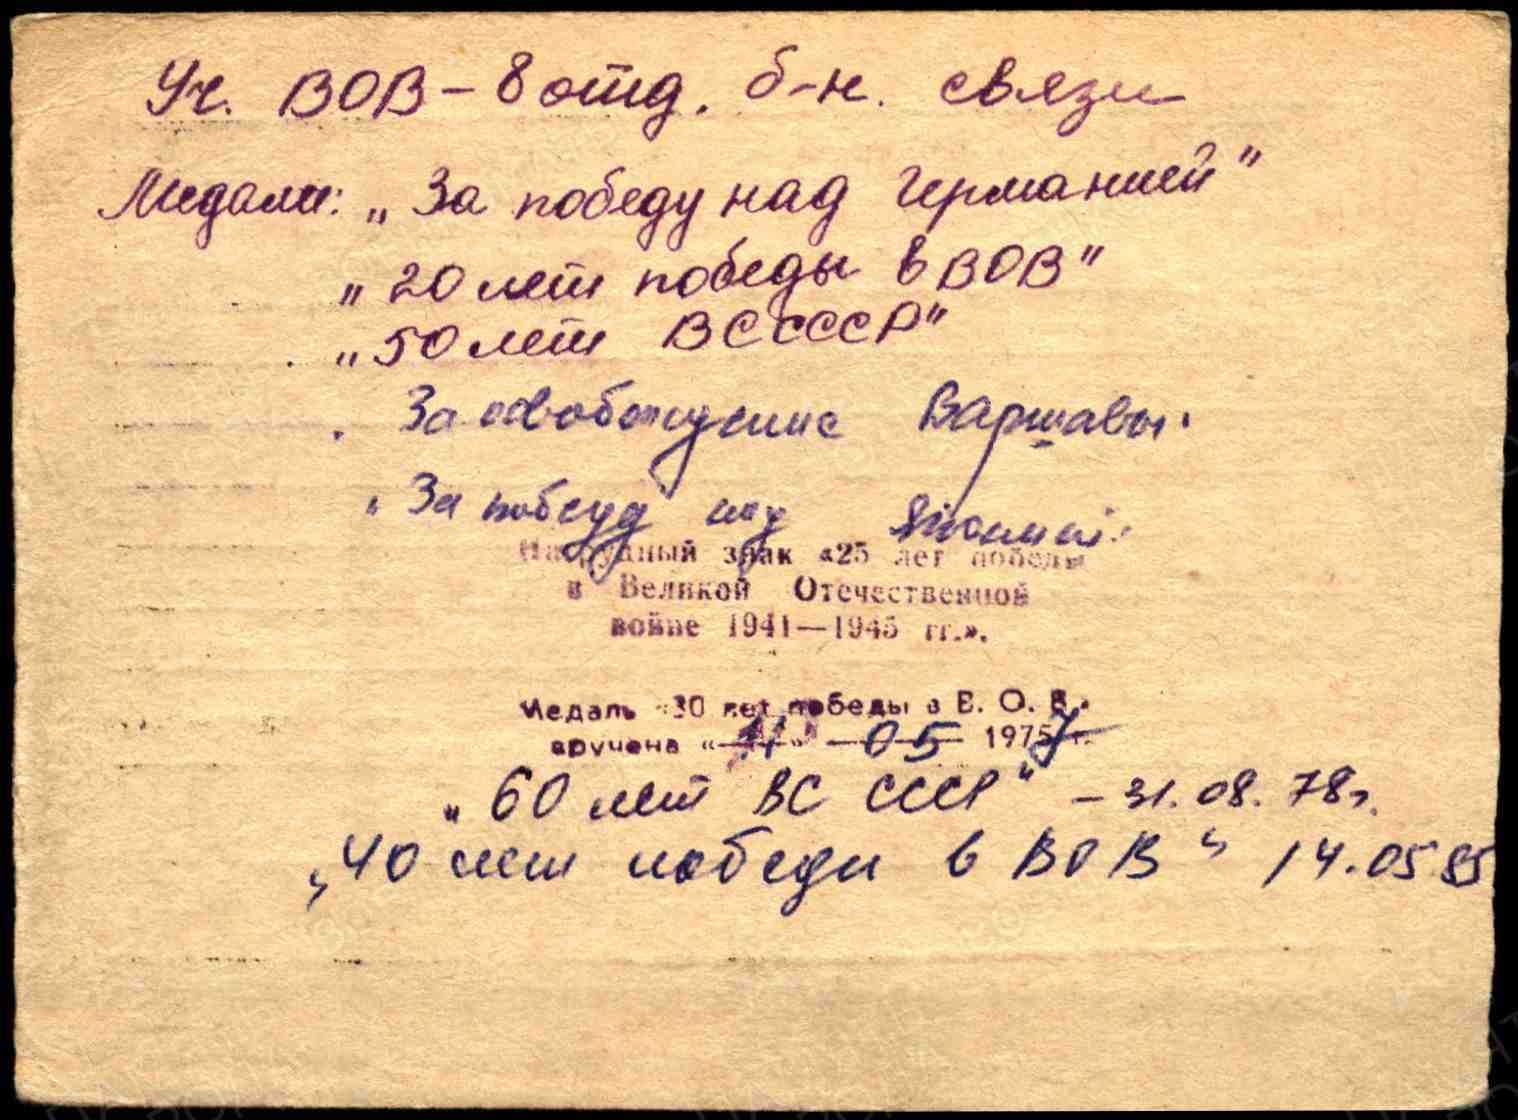 Уч. ВОВ – 8 отд. б-н. связи
Медали: „За победу над Германией"
„20 лет победы в ВОВ"
„50 лет ВС СССР"
„За освобождение Варшавы.
„За победу над Японией.
Нагрудный знак «25 лет победы
в Великой Отечественной
войне 1941—1945 гг.».
Медаль «30 лет победы в В. О. В.
вручена « » 05 1975 г.
„60 лет ВС СССР" – 31.08.78г.
„40 лет победы в ВОВ" 14.05.85